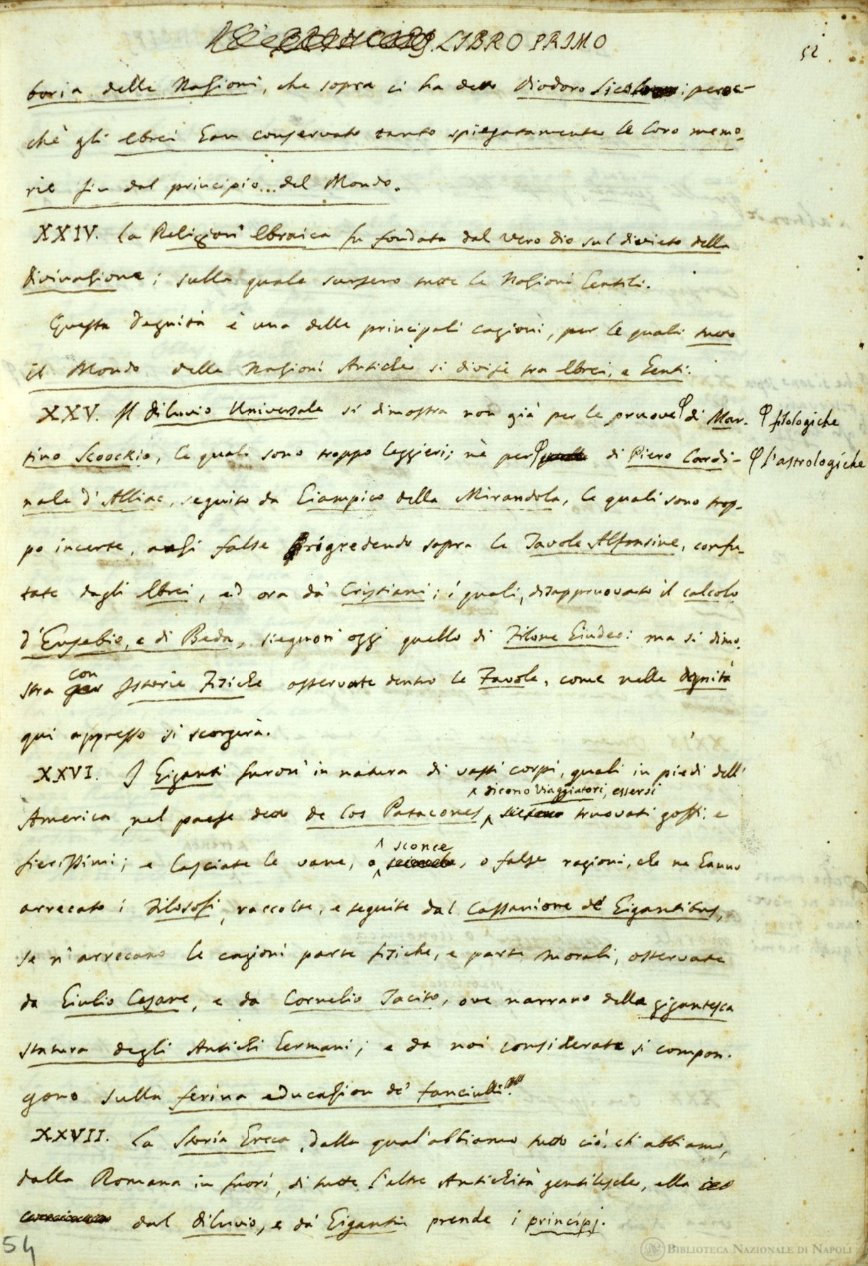 LIBRO PRIMO
52
boria delle Nazioni, che sopra ci ha detto Diodoro Siculo; peroc-
chè gli Ebrei han conservato tanto spiegatamente le loro memo-
rie fin dal principio del Mondo.
XXIV. La Religion' Ebraica fu fondata dal vero Dio sul divieto della
divinazione; sulla quale sursero tutte le Nazioni Gentili.
Questa Degnità è una delle principali cagioni, per le quali tutto
il Mondo delle Nazioni Antiche si divise tra Ebrei, e Genti.
XXV. Il Diluvio Universale si dimostra non già per le pruove φ di Mar- φ filologiche
tino Scoockio, le quali sono troppo leggieri; nè per φ di Piero Cardi- φ l'astrologiche
nale d'Alliac, seguito da Giampico della Mirandola, le quali sono trop-
po incerte, anzi false rigredendo sopra le Tavole Alfonsine, confu-
tate dagli Ebrei, ed ora da' Cristiani; i quali, disappruovato il calcolo
d'Eusebio, e di Beda, sieguon' oggi quello di Filone Giudeo: ma si dimo-
stra con Istorie Fisiche osservate dentro le Favole, come nelle degnità
qui appresso si scorgerà.
XXVI. I Giganti furon' in natura di vasti corpi, quali in piedi dell'
^ dicono viaggiatori, essersi
America, nel paese detto de los Patacones ^ truovati goffi, e
sconce
fierissimi; e lasciate le vane, o ^, o false ragioni, che ne hanno
arrecato i Filosofi, raccolte, e seguite dal Cassanione de Gigantibus,
se n'arrecano le cagioni parte fisiche, e parte morali, osservate
da Giulio Cesare, e da Cornelio Tacito, ove narrano della gigantesca
statura degli Antichi Germani; e da noi considerate si compon-
gono sulla ferina educazion de' fanciulli.
XXVII. La Storia Greca, dalla qual' abbiamo tutto ciò, ch'abbiamo,
dalla Romana in fuori, di tutte l'altre Antichità gentilesche, ella
dal diluvio, e da' Giganti prende i principj.
54
BIBLIOTECA NAZIONALE DI NAPOLI